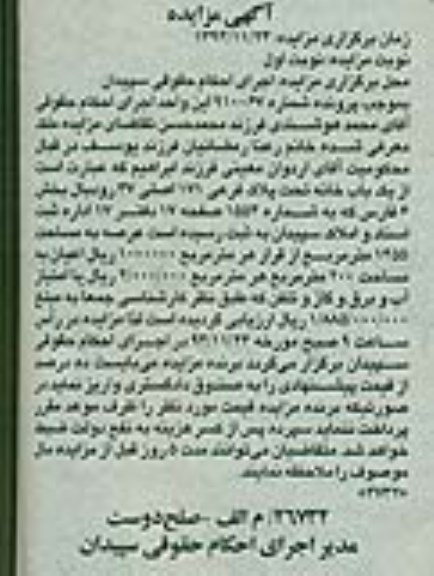 آگهی مزایده
زمان برگزاری مزایده: ۱۳۹۳/۱۱/۲۳
نوبت مزایده: نوبت اول
محل برگزاری مزایده: اجرای احکام حقوقی سپیدان
بموجب پرونده شماره ۹۱۰۰۴۷ این واحد اجرای احکام حقوقی
آقای محمد هوشمندی فرزند محمدحسن تقاضای مزایده ملک
معرفی شده خانم رعنا رمضانیان فرزند یوسف در قبال
محکومیت آقای اردوان مقیمی فرزند ابراهیم که عبارت است
از یک باب خانه تحت پلاک فرعی ۱۷۱ اصلی ۳۷ رودبال بخش
۶ فارس که به شماره ۱۵۵۴ صفحه ۱۷ دفتر ۱۷ اداره ثبت
اسناد و املاک سپیدان به ثبت رسیده است عرصه به مساحت
۱۲۵۵ مترمربع از قرار هر مترمربع ۱۰۰۰۰۰۰ ریال اعیان به
مساحت ۲۰۰ مترمربع هر مترمربع ۲/۰۰۰/۰۰۰ ریال با امتیاز
آب و برق و گاز و تلفن که طبق نظر کارشناسی جمعا به مبلغ
۱/۸۸۵/۰۰۰/۰۰۰ ریال ارزیابی گردیده است لذا مزایده در رأس
ساعت ۹ صبح مورخه ۹۳/۱۱/۲۳ در اجرای احکام حقوقی
سپیدان برگزار می‌گردد برنده مزایده می‌بایست ده درصد
از قیمت پیشنهادی را به صندوق دادگستری واریز نماید در
صورتیکه برنده مزایده قیمت مورد نظر را ظرف موعد مقرر
پرداخت ننماید سپرده پس از کسر هزینه به نفع دولت ضبط
خواهد شد. متقاضیان می‌توانند مدت ۵ روز قبل از مزایده مال
موصوف را ملاحظه نمایند.
۲۶۷۳۴/ م الف - صلح‌دوست
مدیر اجرای احکام حقوقی سپیدان